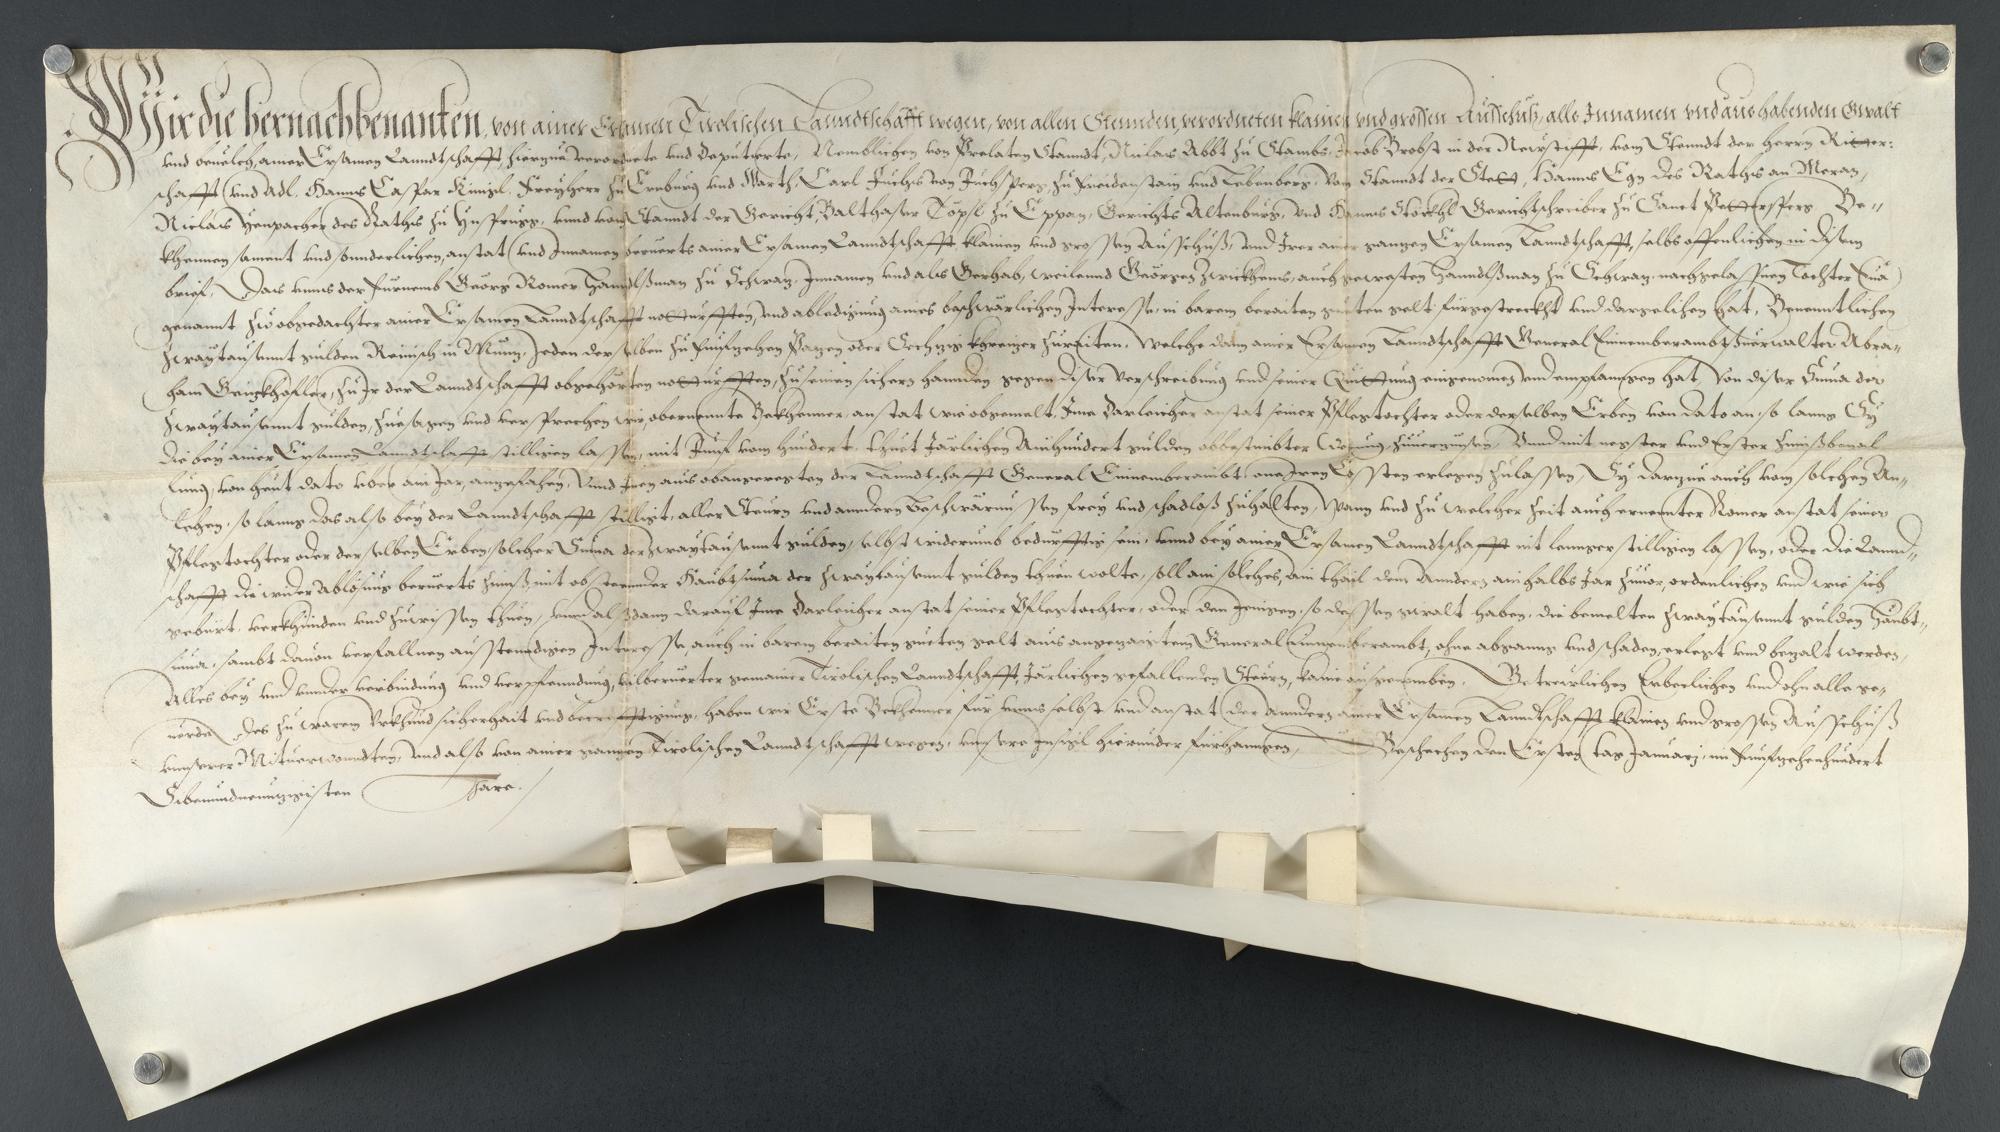 Wir die hernachbenanten, von ainer Ersamen Tirolischen Lanndtschafft wegen, von allen Stennden, verordneten klainen vnd grossen Ausschuß, alls Innamen vnd aus habenden Gwalt
vnd beuelch, ainer Ersamen Lanndtschafft, hierzue verordnete vnd Deputierte, Nemblichen von Prelaten Stanndt, Niclas Abbt zu Stambs, Jacob Brobst in der Newstifft, vom Stanndt der herrn Ritter:
schafft vnd Adl. Hanns Caspar Künigl, Freyherr zu Ernburg vnd Warth, Carl Fuchs von Fuchsperg, zu Freidenstain vnd Lebenberg, Von Stanndt der Stett, Hanns Egn des Raths an Meran,
Niclas Henpacher des Raths zu Ynsprugg, vnnd von Stanndt der Gericht, Balthasar Töpsl zu Eppan, Gerichts Altenburg, vnd Hanns Stöckhl Gerichtschreiber zu Sanct Pettersperg Be=
khennen sament vnd sonnderlichen, anstat vnd Innamen beruerts ainer Ersamen Lanndtschafft klainen vnd grossen Ausschuß, vnd Irer ainer ganzen Ersamen Lanndtschafft, selbs offenlichen in disem
brief, Das vnns der Furnemb Geörg Romer Hanndlßman zu Schwaz, Innamen vnd als Gerhab, weilennd Geörgen Zwickhens, auch gewesten Hanndlßman zu Schwaz, nachgelassnen Tochter Eua
genannt zu obgedachter ainer Ersamen Lanndtschafft notturfften, vnd abledigung aines beschwärlichen Interesse, in barem beraiten gueten gelt fürgestreckht vnd dargelichen hat, Benenntlichen
Zwaytausennt gulden Reinisch in Münz, Jeden derselben zu Funfzehen Pazen oder Sechzig kreizer zuraiten, Welche dann ainer Ersamen Lanndtschafft General Einnemberambtßuerwalter Abra=
ham Geizkhofler, zu Ir der Lanndtschafft obgehörten notturfften, zu seinen sichern hannden gegen diser verschreibung vnd seiner Quittung eingenomen vnd empfanngen hat, Von diser Suma der
Zwaytausennt gulden, zuesagen vnd versprechen wir obernennte Bekhenner, anstat wie obgemelt, Ime Darleicher anstat seiner Pflegtochter oder derselben Erben von dato an, so lanng Sy
die bey ainer Ersamen Lanndtschafft stilligen lassen, mit Funf vom hundert, thuet Järlichen Ainhundert gulden obbestimbter Werung zuuerzinsen, Vnnd mit negster vnd Erster Zinnßbezal
lung, von heut dato vber ain Jar, anzufahen, Vnnd Inen aus obangeregten der Lanndtschafft General Einnemberambt, one Iren Costen erlegen zulassen, Sy darzue auch von solchen An=
lehen, so lanng das also bey der Lanndtschafft stilligt, aller Steurn vnd anndern Beschwärnussen frey vnd schadloß zuhalten, Wann vnd zu welcher zeit auch ernennter Romer anstat seiner
Pflegtochter oder derselben Erben, solcher Suma der Zwaytausennt gulden, selbst widerumb bedürfftig sein, vnnd bey ainer Ersamen Lanndtschafft nit lennger stilligen lassen, oder die Lannd=
schafft die wider Ablösung beruerts Zinnß, mit obsteennder Haubtsuma der Zwaytausennt gulden thuen wolte, soll ain solches, ain thail dem Anndern ain halbs Jar zuuor, ordenlichen vnd wie sich
gebürt, verkhünden vnd zuwissen thuen, vnnd alßdann darauf Ime Darleicher anstat seiner Pflegtochter, oder den Jenigen, so dessen gwalt haben, die bemelten Zwaytausennt gulden Haubt=
suma, sambt dauon verfallnen ausstenndigen Interesse, auch in barem beraiten gueten gelt aus angezaigtem General Einnemberambt, ohne abganng vnd schaden, erlegt vnd bezalt werden,
Alles bey vnd vnnder verbindung vnd verpfenndung, vilberuerter gemainer Tirolischen Lanndtschafft, Järlichen gefallenden Steürn, kaine ausgenomben. Getrewlichen Erberlichen vnd ohn alle ge=
uerde, Des zu warem Vrkhund sicherhait vnd becrefftigung, haben wir Erste Bekhenner für vnns selbst vnd anstat der anndern ainer Ersamen Lanndtschafft klainen vnd grossen Ausschuß
vnnserer Mituerwonndten, vnd also von ainer ganzen Tirolischen Lanndtschafft wegen, vnnsere Insigl hierunder fürhanngen, Beschehen den Ersten tag Januarj, im Funfzehenhundert
Sibenundneunzigisten Jare.